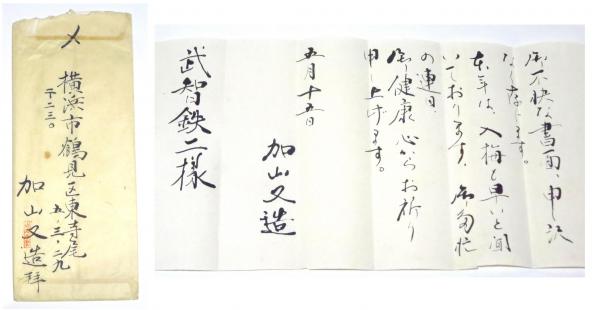 〆
横浜市鶴見区東寺尾
五、三、二九
〒二三〇
加山又造拝
御不快な書面、申し訳
なく存じます。
本年は、入梅も早いと聞
いております。御多忙
の連日、
御健康心からお祈り
申し上げます。
五月十五日
加山又造
武智鉄二様